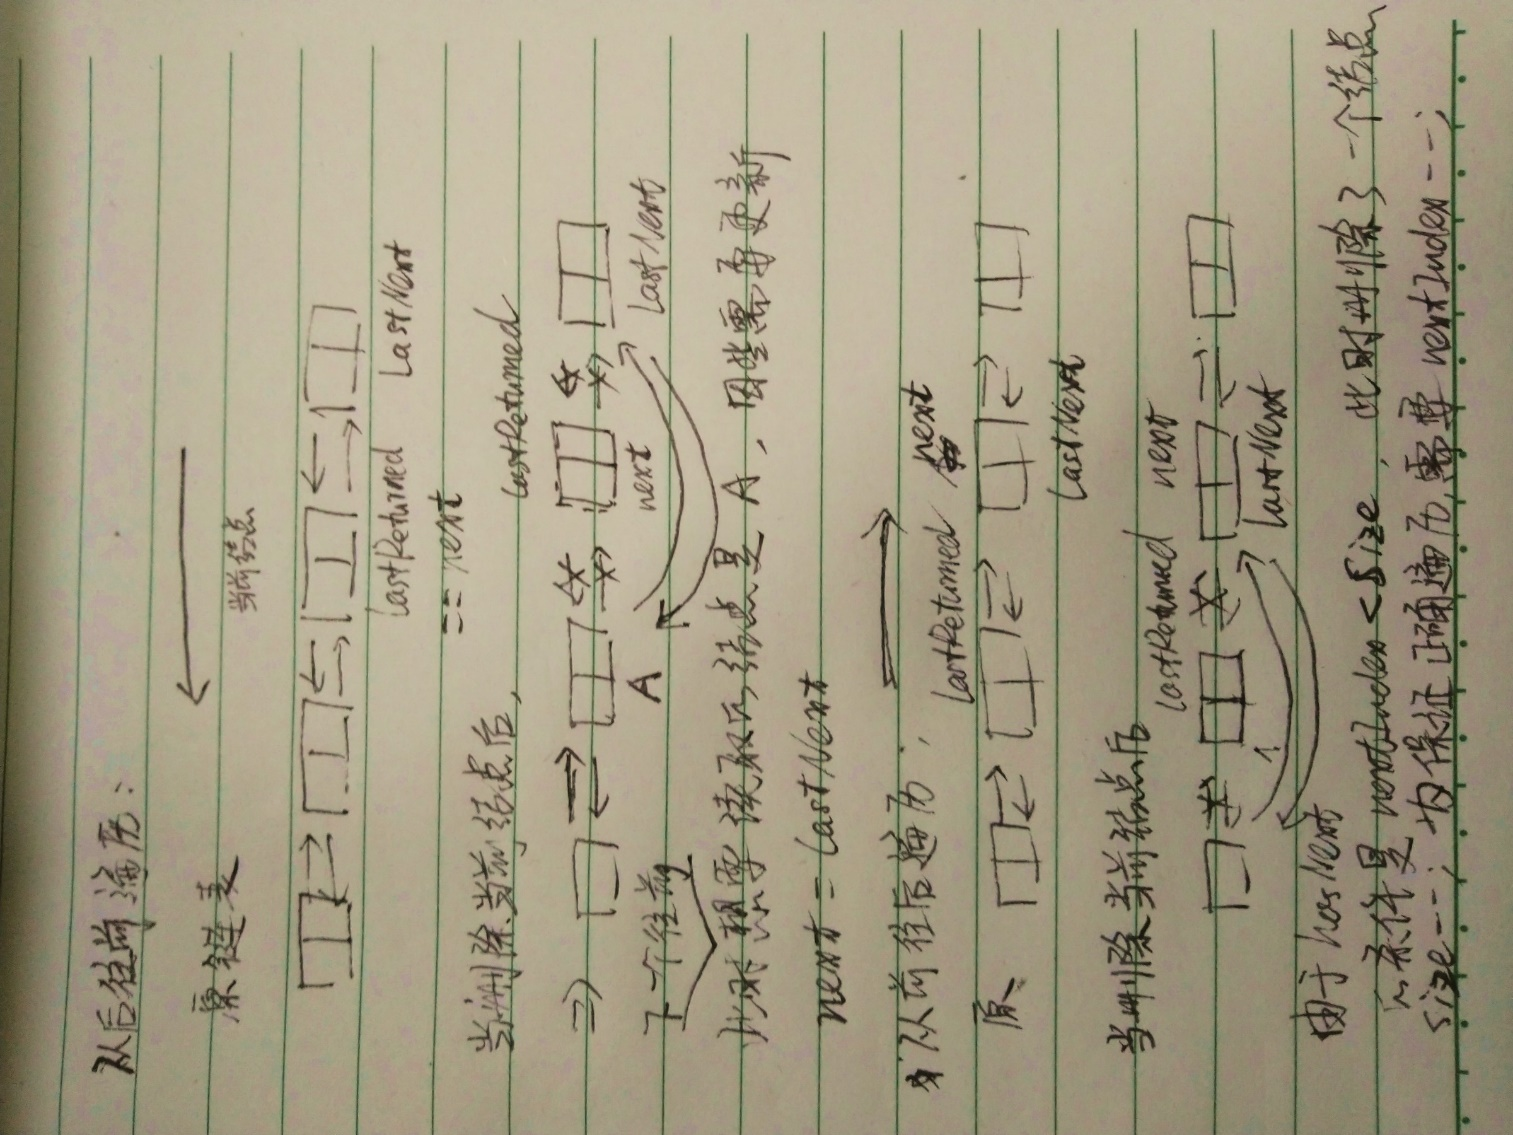 从后往前遍历：
当前结点
原链表
lastReturned LastNext
== next
当删除当前结点后，
lastReturned
=>
A next LastNext
下一个往前
此时想要读取的结点是 A，因此需要更新
next = lastNext
从前往后遍历．
lastReturned next
原、
LastNext
当删除当前结点后
lastReturned next
lastNext
由于hasNext
的条件是 nextIndex < size，此时删除了一个结点
size--；为保证正确遍历，需要 nextIndex--；